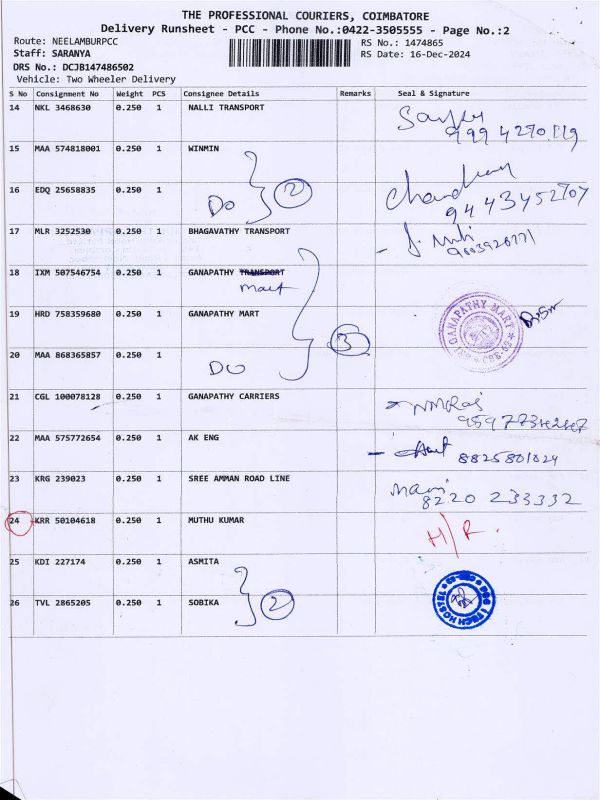 THE PROFESSIONAL COURIERS, COIMBATORE
Delivery Runsheet - PCC - Phone No.:0422-3505555 - Page No.:2
Route: NEELAMBURPCC RS No.: 1474865
Staff: SARANYA RS Date: 16-Dec-2024
DRS No.: DCJB147486502
Vehicle: Two Wheeler Delivery
S No Consignment No Weight PCS Consignee Details Remarks Seal & Signature
14 NKL 3468630 0.250 1 NALLI TRANSPORT
15 MAA 574818001 0.250 1 WINMIN
16 EDQ 25658835 0.250 1 Do 2
17 MLR 3252530 0.250 1 BHAGAVATHY TRANSPORT
18 IXM 507546754 0.250 1 GANAPATHY TRANSPORT
Mart
19 HRD 758359680 0.250 1 GANAPATHY MART GANAPATHY MART
20 MAA 868365857 0.250 1 DO 3
21 CGL 100078128 0.250 1 GANAPATHY CARRIERS
22 MAA 575772654 0.250 1 AK ENG 8825801024
23 KRG 239023 0.250 1 SREE AMMAN ROAD LINE 8220 233332
24 KRR 50104618 0.250 1 MUTHU KUMAR H/R.
25 KDI 227174 0.250 1 ASMITA
26 TVL 2865205 0.250 1 SOBIKA 2